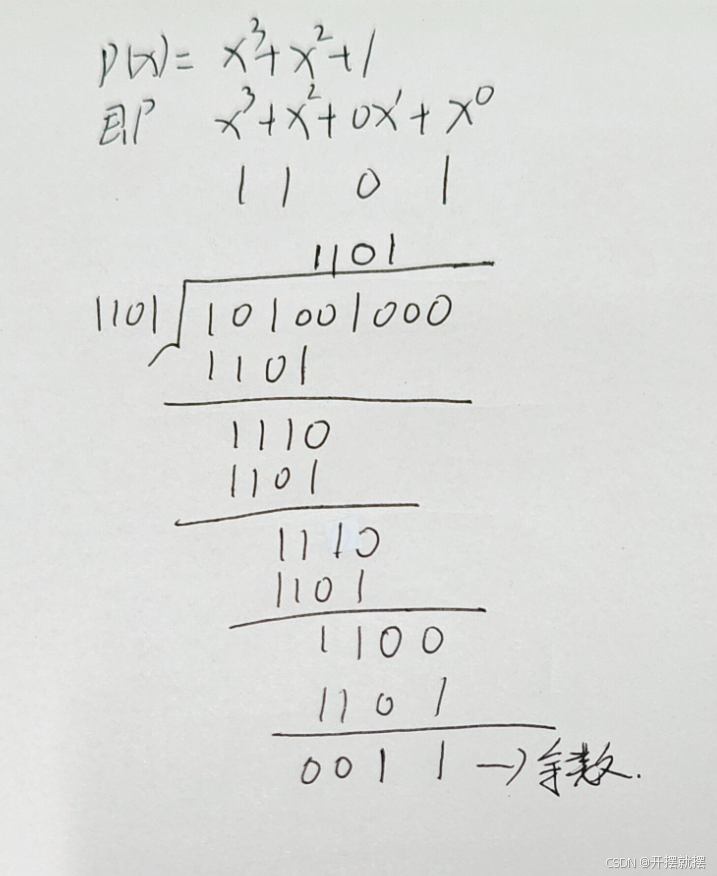 P(x) = x³+x²+1
即 x³+x²+0x¹+x⁰
1 1 0 1
1101
1101 101001000
1101
1110
1101
1110
1101
1100
1101
0011 → 余数.
CSDN @开摆就摆